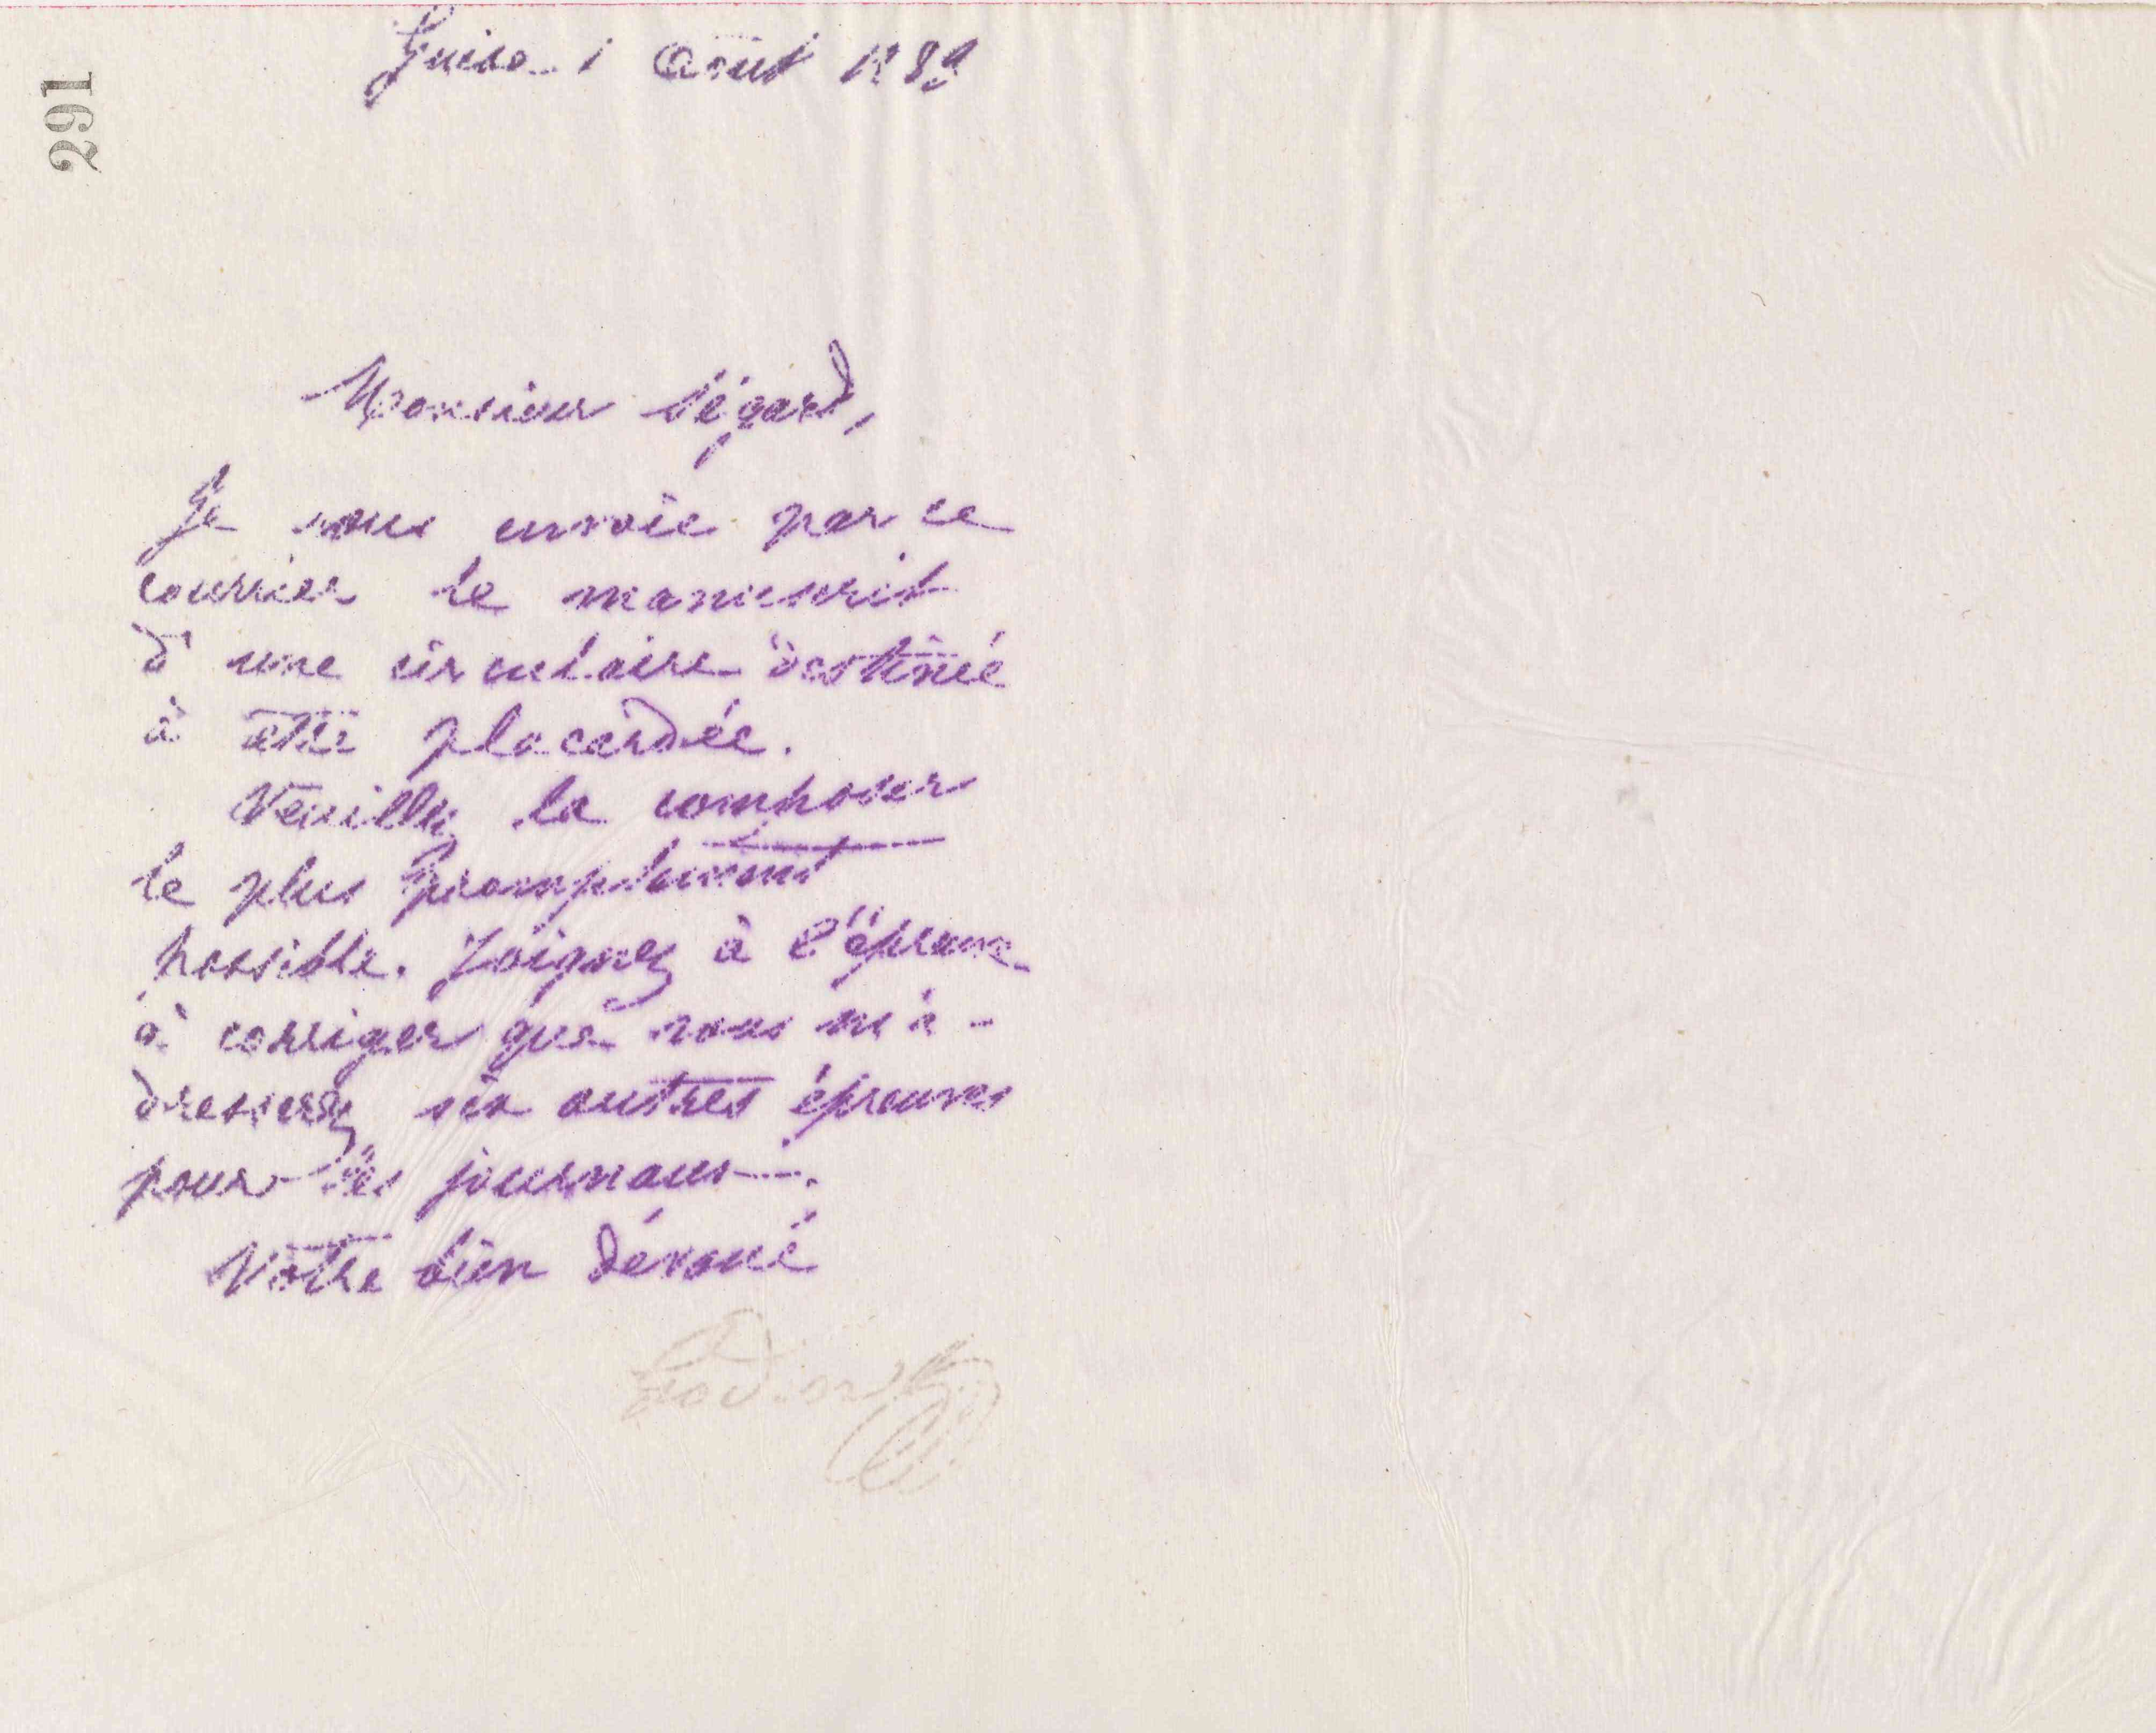 291
Guise 1 Août 1889
Monsieur Ségard,
Je vous envoie par ce
courrier le manuscrit
d'une circulaire destinée
à être placardée.
Veuillez la composer
le plus promptement
possible. Joignez à l'épreuve
à corriger que vous m'a-
dresserez six autres épreuves
pour les journaux.
Votre bien dévoué
Godin